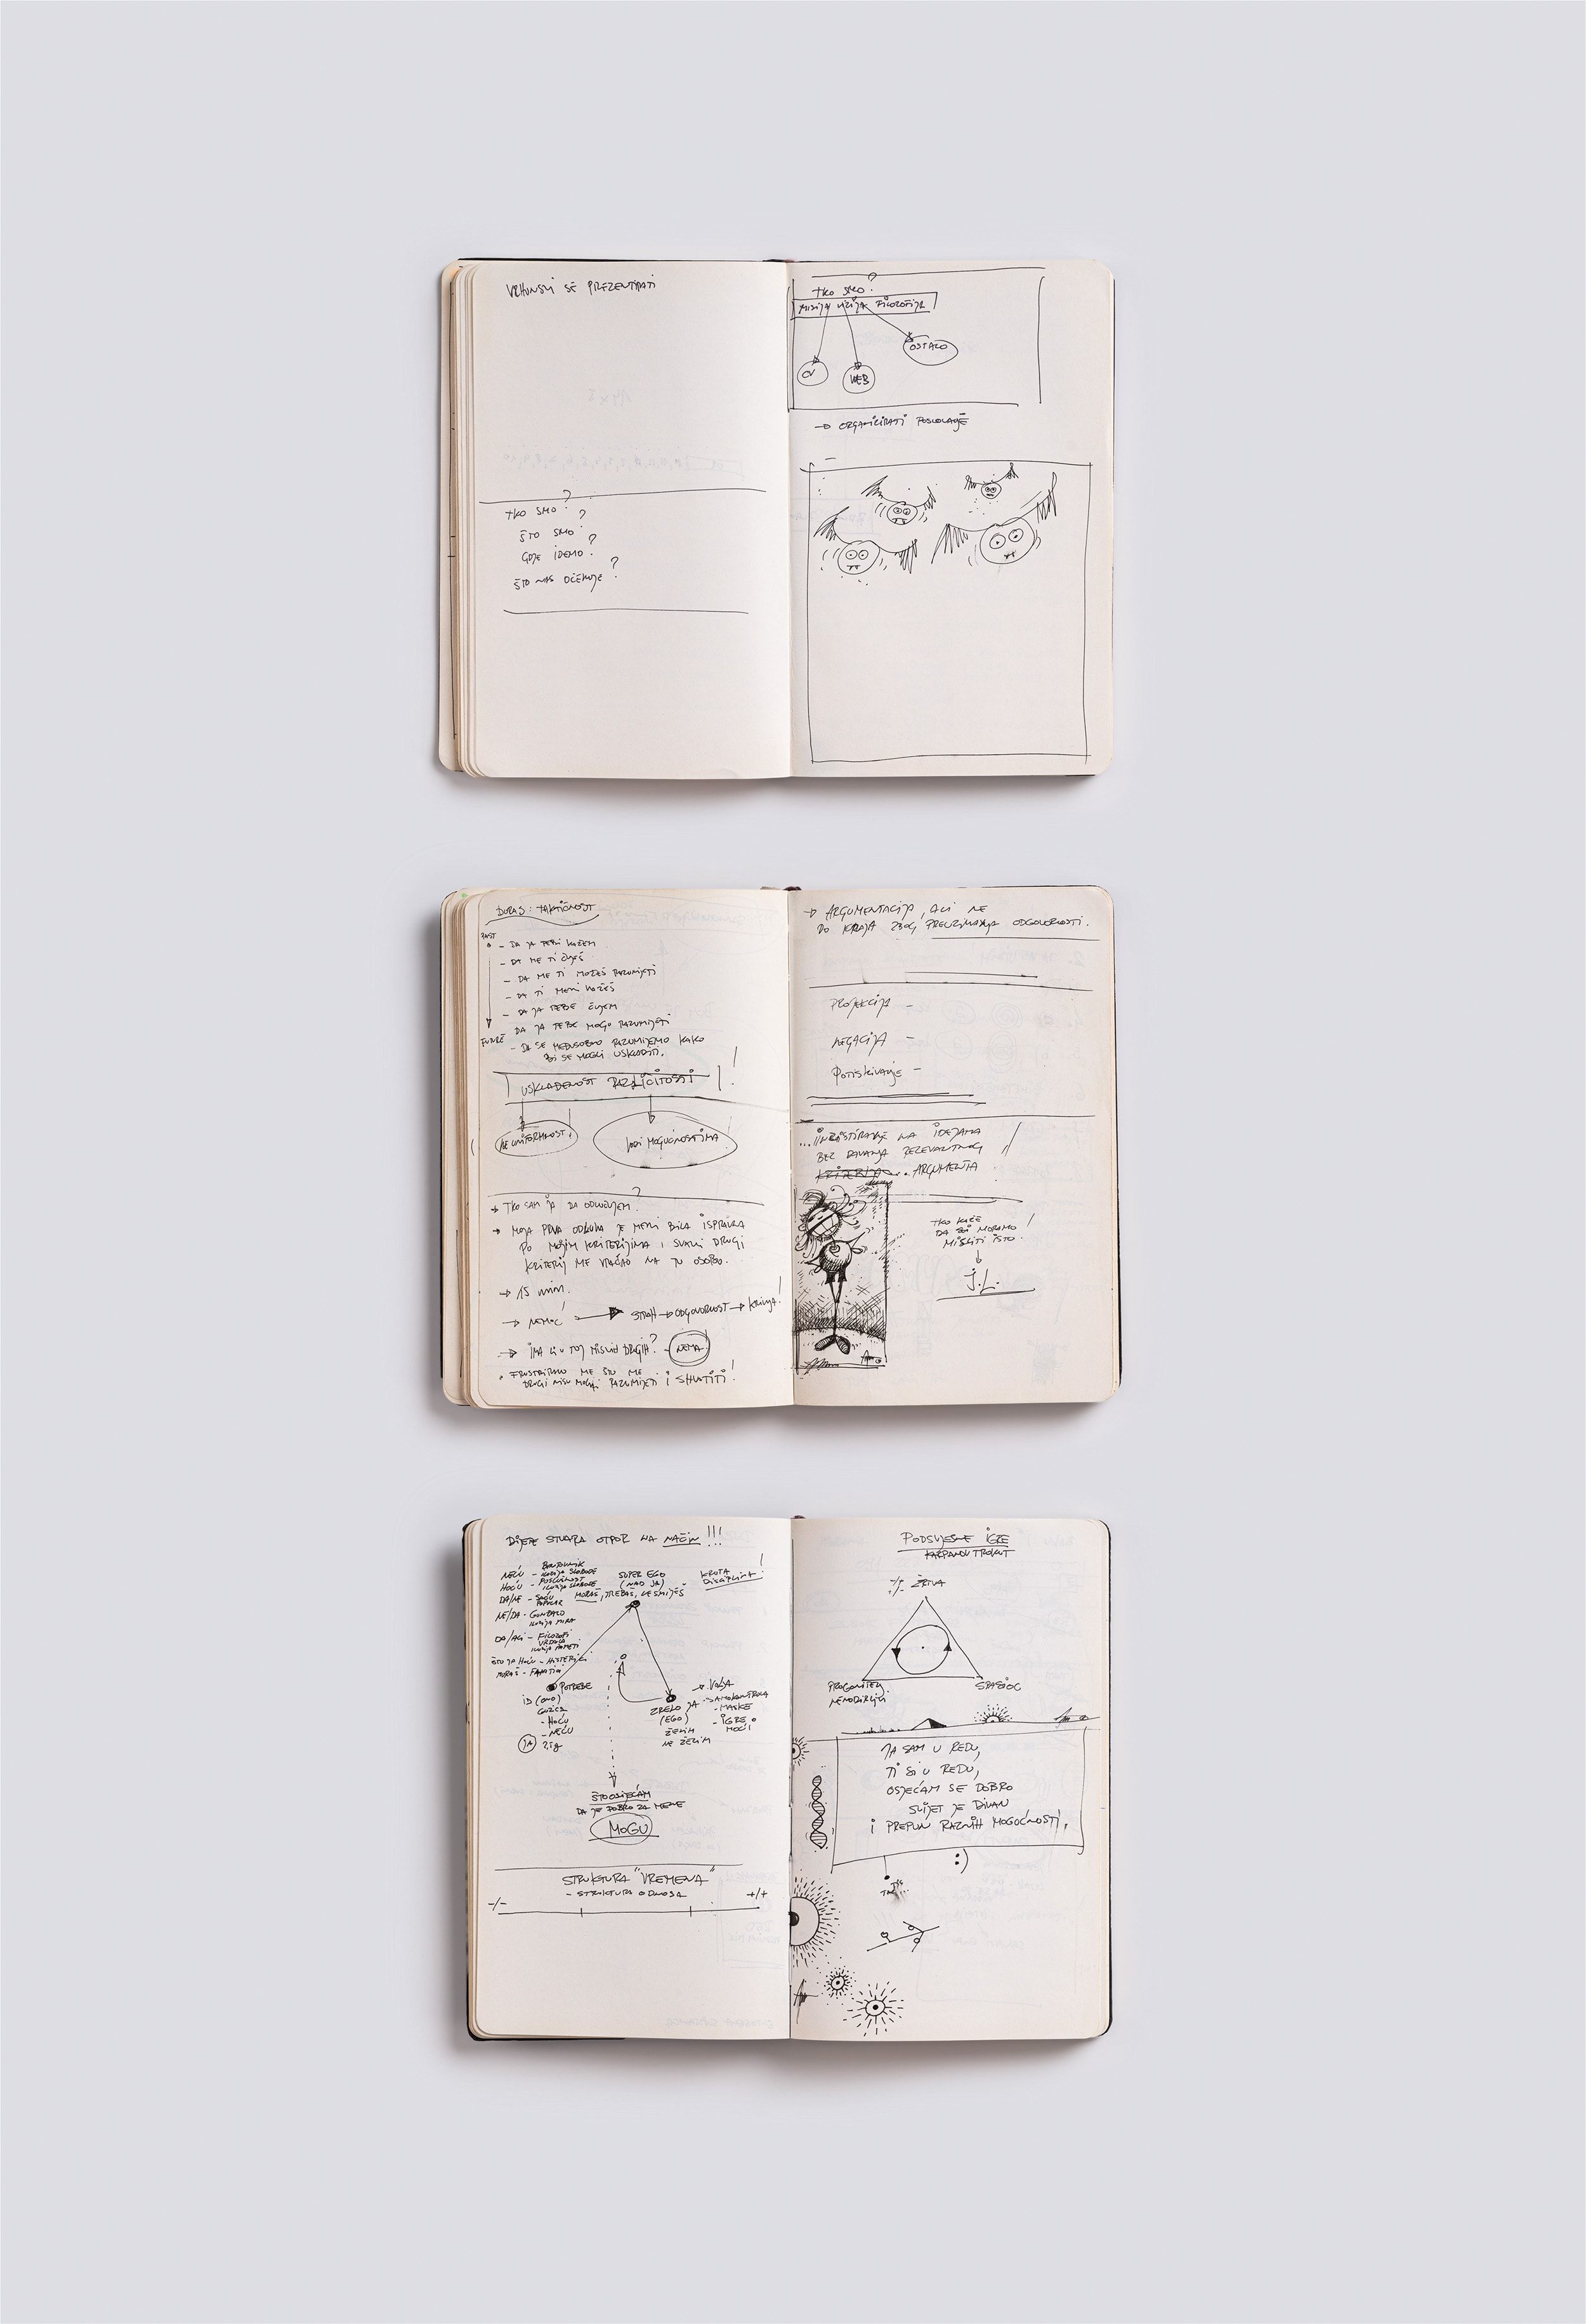 VRHUNSKI SE PREZENTIRATI
TKO SMO?
ŠTO SMO?
GDJE IDEMO?
ŠTO NAS OČEKUJE?
TKO SMO?
MISIJA VIZIJA FILOZOFIJA
OSTALO
CV
WEB
→ ORGANIZIRATI POSLOVANJE
TAKTIČNOST
PAST
- DA JA TEBI KAŽEM
- DA ME TI ČUJEŠ
- DA ME TI MOŽEŠ RAZUMIJETI
- DA TI MENI KAŽEŠ
- DA JA TEBE ČUJEM
- DA JA TEBE MOGU RAZUMIJETI
- DA SE MEĐUSOBNO RAZUMIJEMO KAKO
BI SE MOGLI USKLADITI.
USKLAĐENOST RAZLIČITOSTI!
NE UNIFORMNOST!
VODI MOGUĆNOSTIMA
→ TKO SAM JA DA ODLUČUJEM?
→ MOJA PRVA ODLUKA JE MENI BILA ISPRAVNA
PO MOJIM KRITERIJIMA I SVAKI DRUGI
KRITERIJ ME VRAĆAO NA TU OSOBU.
→ 15 min.
→ NEMOĆ! → STRAH → ODGOVORNOST → KRIVNJA!
→ IMA LI U TOJ MISLIH DRUGIH? - NEMA.
• FRUSTRIRALO ME ŠTO ME
DRUGI NISU MOGLI RAZUMIJETI I SHVATITI!
→ ARGUMENTACIJA, ALI NE
DO KRAJA ZBOG PREUZIMANJA ODGOVORNOSTI.
PROJEKCIJA -
NEGACIJA -
POTISKIVANJE -
...INZISTIRANJE NA IDEJAMA
BEZ DAVANJA RELEVANTNOG
KRITERIJA. ARGUMENTA
TKO KAŽE
DA SVI MORAMO
MISLITI ISTO!
J.L.
DIJETE STVARA OTPOR NA NAČIN!!!
NEĆU - BUNTOVNIK
ILUZIJA SLOBODE
HOĆU - POSLUŠNOST
ILUZIJA SLOBODE
DA/NE -
NE/DA -
ILUZIJA MIRA
DA/ALI - FILOZOFI
ILUZIJA PAMETI
ŠTO JA HOĆU - HISTERIJA
MORAŠ - FANATIK
SUPER EGO
(NAD JA)
MORAŠ, TREBAŠ, NE SMIJEŠ
KROTA
DISCIPLINA!
POTREBE
ID (ONO)
- HOĆU
- NEĆU
JA
ZRELO JA
(EGO)
ŽELIM
NE ŽELIM
→ VOLJA
- SAMOKONTROLA
- MASKE
- IGRE MOĆI
ŠTO OSJEĆAM
DA JE DOBRO ZA MENE
MOGU
STRUKTURA "VREMENA"
- STRUKTURA ODNOSA
-/-
+/+
PODSVJESNE IGRE
KARPANOV TROKUT
-/- ŽRTVA
PROGONITELJ
SPASIOC
JA SAM U REDU,
TI SI U REDU,
OSJEĆAM SE DOBRO
SVIJET JE DIVAN
I PREPUN RAZNIH MOGUĆNOSTI.
:)